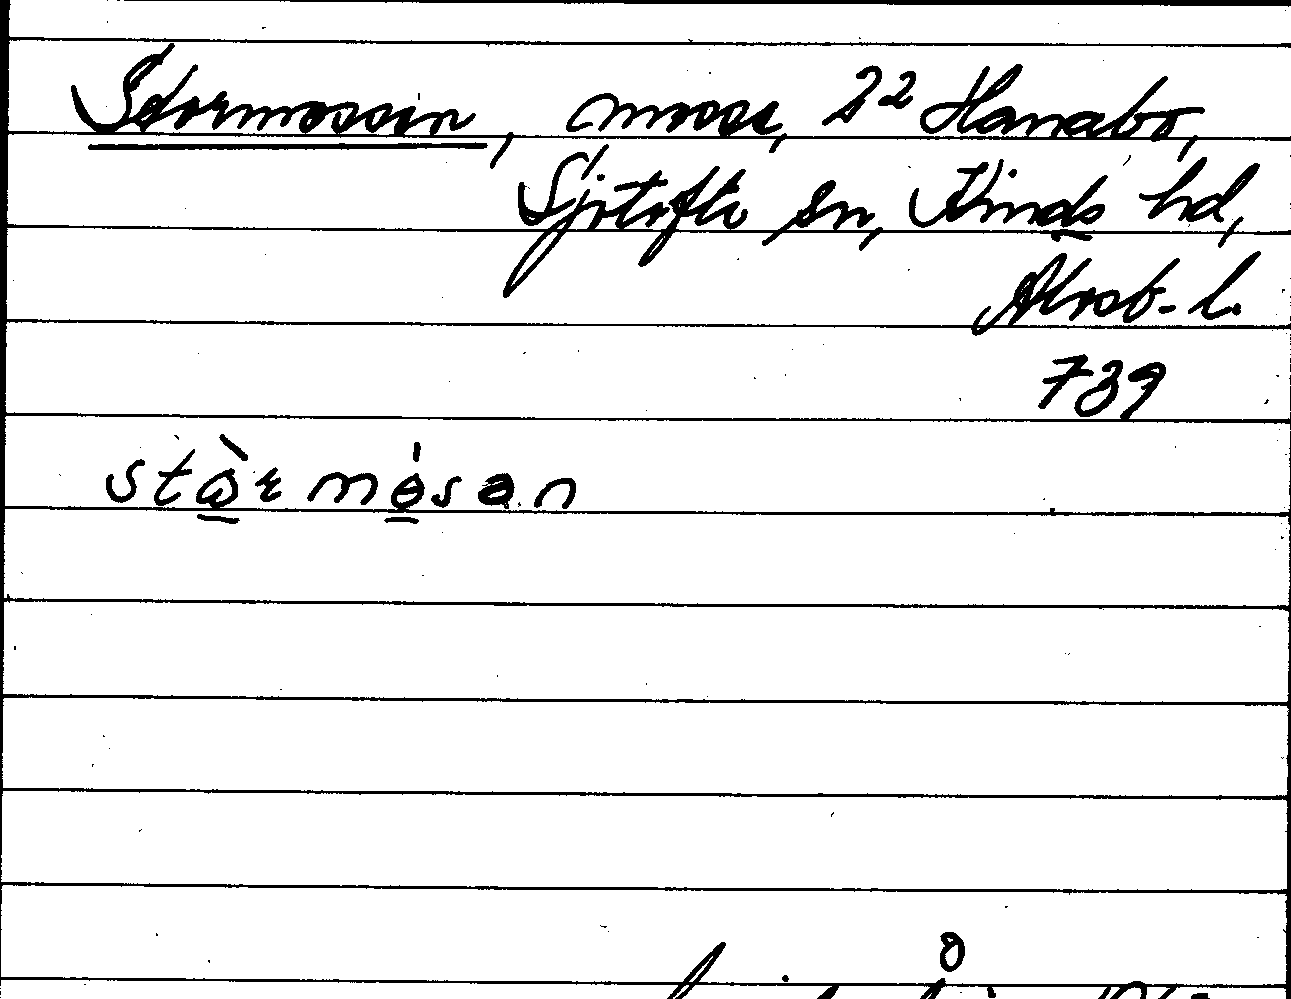 Stormossen, mosse, 2² Hanabo,
Sjötofta sn, Kinds hd,
Älvsb. l.
739
stɷ̀r mɵ́sən